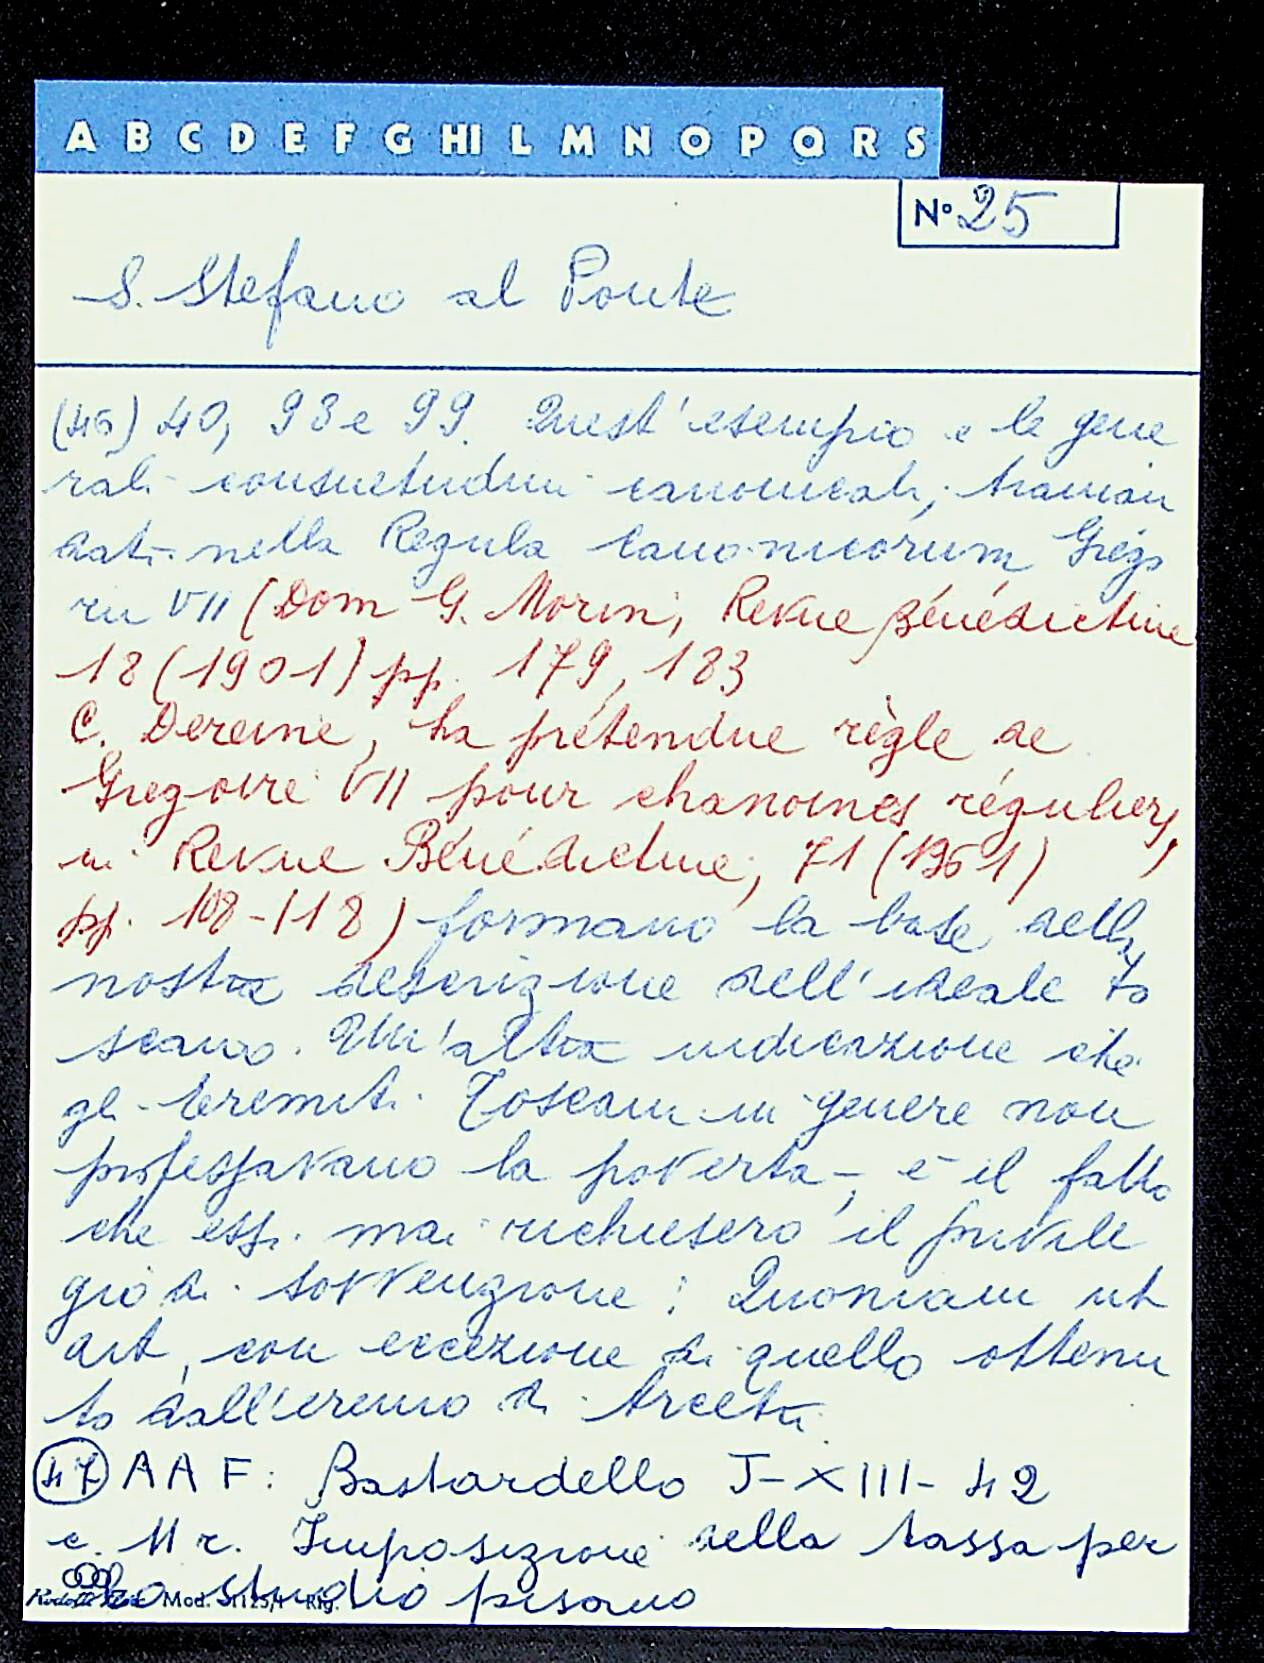 A B C D E F G HI L M N O P Q R S
N° 25
S. Stefano al Ponte
(46) 40, 98 e 99. Quest'esempio e le gene
rali consuetudini canonicali, traman
dati nella Regula Canonicorum Grego
rii VII (Dom G. Morin, Revue Bénédictine
18 (1901) pp. 179, 183
C. Dereine, La prétendue règle de
Gregoire VII pour chanoines réguliers,
in Revue Bénédictine, 71 (1961)
pp. 108-118) formano la base della
nostra descrizione dell'ideale To
scano. Un'altra indicazione che
gli Eremiti Toscani in genere non
professavano la povertà, è il fatto
che essi mai richiesero il privile
gio di sovvenzione: Quoniam ut
ait, con eccezione di quello ottenu
to dall'eremo di
(47) AAF: Bastardello J-XIII-42
c. 11 r. Imposizione della tassa per
lo studio pisano
Mod.